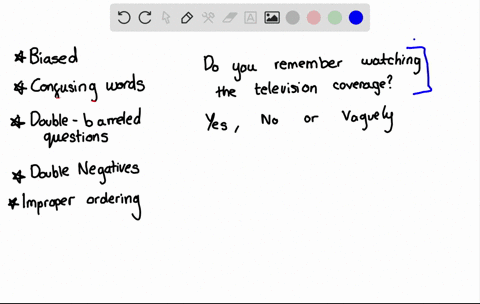 * Biased
* Confusing words
* Double-barreled
questions
* Double Negatives
* Improper ordering
Do you remember watching
the television coverage?
Yes, No or Vaguely